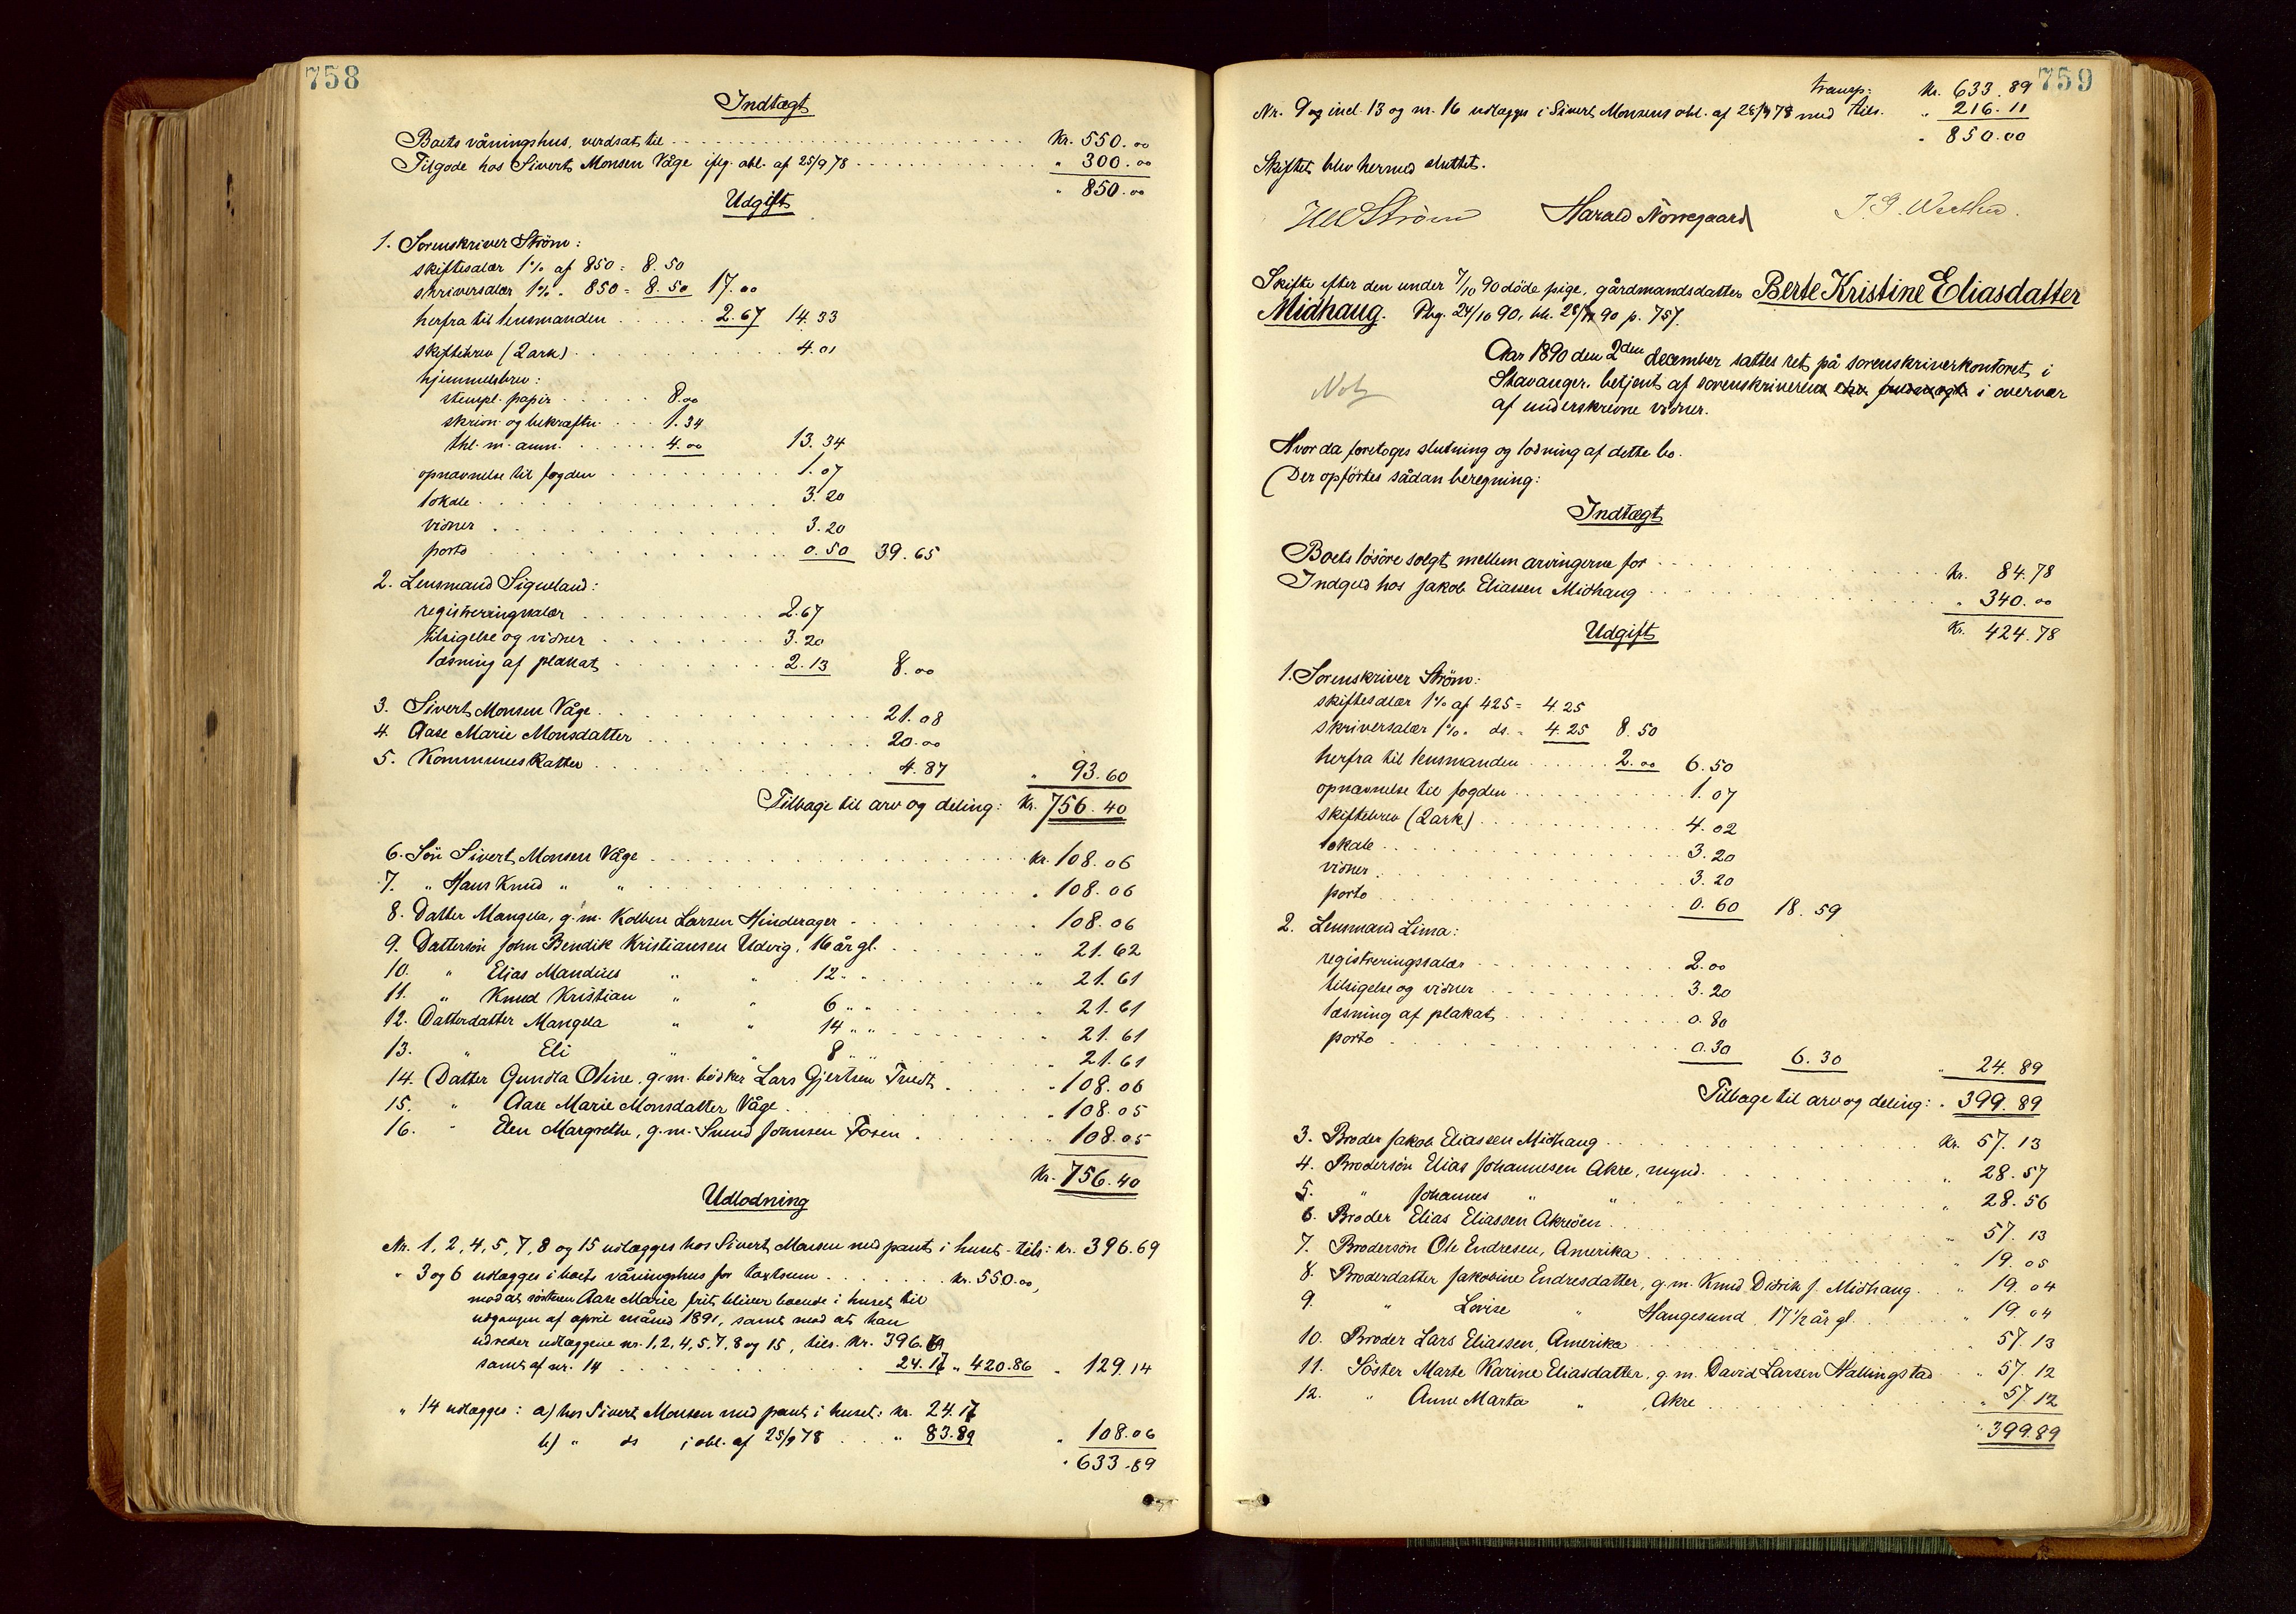 758
Indtægt
Boets våningshus, verdsat til . . . Kr. 550.00
Tilgode hos Sivert Monsen Våge iflg. obl. af 25/9 78 . . . " 300.00
" 850.00
Udgift
1. Sorenskriver Strøm:
skiftesalær 1% af 850 = 8.50
skriversalær 1% " 850 = 8.50 17.00
herfra til lensmanden . . . 2.67 14.33
skiftebrev (2 ark) . . . 4.01
hjemmelsbrev:
stempl. papir . . . 8.00
skrivn. og bekræftn. . . . 1.34
thl. m. ann. . . . 4.00 13.34
opnævnelse til fogden . . . 1.07
lokale . . . 3.20
vidner . . . 3.20
porto . . . 0.50 39.65
2. Lensmand Sigveland:
registreringssalær . . . 2.67
tilsigelse og vidner . . . 3.20
læsning af plakat . . . 2.13 8.00
3. Sivert Monsen Våge . . . 21.08
4. Aase Marie Monsdatter . . . 20.00
5. Kommuneskatter . . . 4.87 " 93.60
Tilbage til arv og deling: Kr. 756.40
6. Søn Sivert Monsen Våge . . . Kr. 108.06
7. " Hans Knud " " . . . " 108.06
8. Datter Mangela, g. m. Kolben Larsen Hinderager . . . " 108.06
9. Dattersøn John Bendik Kristiansen Udvig, 16 år gl. . . . " 21.62
10. " Elias Mandius " " 12 " " . . . " 21.61
11. " Knud Kristian " " 6 " " . . . " 21.61
12. Datterdatter Mangela " " 14 " " . . . " 21.61
13. " Eli " " 8 " " . . . " 21.61
14. Datter Gundla Oline, g. m. bødker Lars Gjertsen Tveit . . . " 108.06
15. " Aase Marie Monsdatter Våge . . . " 108.05
16. " Elen Margrethe, g. m. Svend Johnsen Fosen . . . " 108.05
Kr. 756.40
Udlodning
Nr. 1, 2, 4, 5, 7, 8 og 15 udlægges hos Sivert Monsen med pant i huset - tils: Kr. 396.69
" 3 og 6 udlægges i boets våningshus for taxtsum . . . Kr. 550.00,
mod at søsteren Aase Marie frit bliver boende i huset til
udgangen af april måned 1891, samt mod at han
udreder udlæggene nr. 1, 2, 4, 5, 7, 8 og 15, tils. Kr. 396.69
samt af nr. 14 . . . 24.17 " 420.86 " 129.14
" 14 udlægges: a) hos Sivert Monsen med pant i huset: Kr. 24.17
b) " ds i obl. af 25/9 78 . . . " 83.89 " 108.06
" 633.89
759
transp: Kr. 633.89
Nr. 9 og incl. 13 og nr. 16 udlægges i Sivert Monsens obl. af 25/9 78 med tils. " 216.11
" 850.00
Skiftet blev hermed sluttet.
Strøm Harald Norregaard
Skifte efter den under 7/10 90 døde pige, gårdmandsdatter Berte Kristine Eliasdatter
Midhaug. Pbg. 24/10 90, bb. 28/11 90 p. 757.
Not
Aar 1890 den 2den december sattes ret på sorenskriverkontoret i
Stavanger, betjent af sorenskriveren i overvær
af underskrevne vidner.
Hvor da foretoges slutning og lodning af dette bo.
Der opførtes sådan beregning:
Indtægt
Boets løsøre solgt mellem arvingerne for . . . Kr. 84.78
Indgæld hos Jakob Eliassen Midhaug . . . " 340.00
Kr. 424.78
Udgift
1. Sorenskriver Strøm:
skiftesalær 1% af 425 = 4.25
skriversalær 1% " ds. = 4.25 8.50
herfra til lensmanden . . . 2.00 6.50
opnævnelse til fogden . . . 1.07
skiftebrev (2 ark) . . . 4.02
lokale . . . 3.20
vidner . . . 3.20
porto . . . 0.60 18.59
2. Lensmand Lima:
registreringssalær . . . 2.00
tilsigelse og vidner . . . 3.20
læsning af plakat . . . 0.80
porto . . . 0.30 6.30 " 24.89
Tilbage til arv og deling: " 399.89
3. Broder Jakob Eliassen Midhaug . . . Kr. 57.13
4. Brodersøn Elias Johannesen Akre, mynd. . . . " 28.57
5. " Johannes " " " . . . " 28.56
6. Broder Elias Eliassen Akreøen . . . " 57.13
7. Brodersøn Ole Endresen, Amerika . . . " 19.05
8. Broderdatter Jakobine Endresdatter, g. m. Knud Didrik J. Midhaug . . . " 19.04
9. " Lovise " Haugesund, 17 1/2 år gl. . . . " 19.04
10. Broder Lars Eliassen, Amerika . . . " 57.13
11. Søster Marte Karine Eliasdatter, g. m. David Larsen Hallingstad . . . " 57.12
12. " Anne Marta " , Akre . . . " 57.12
" 399.89